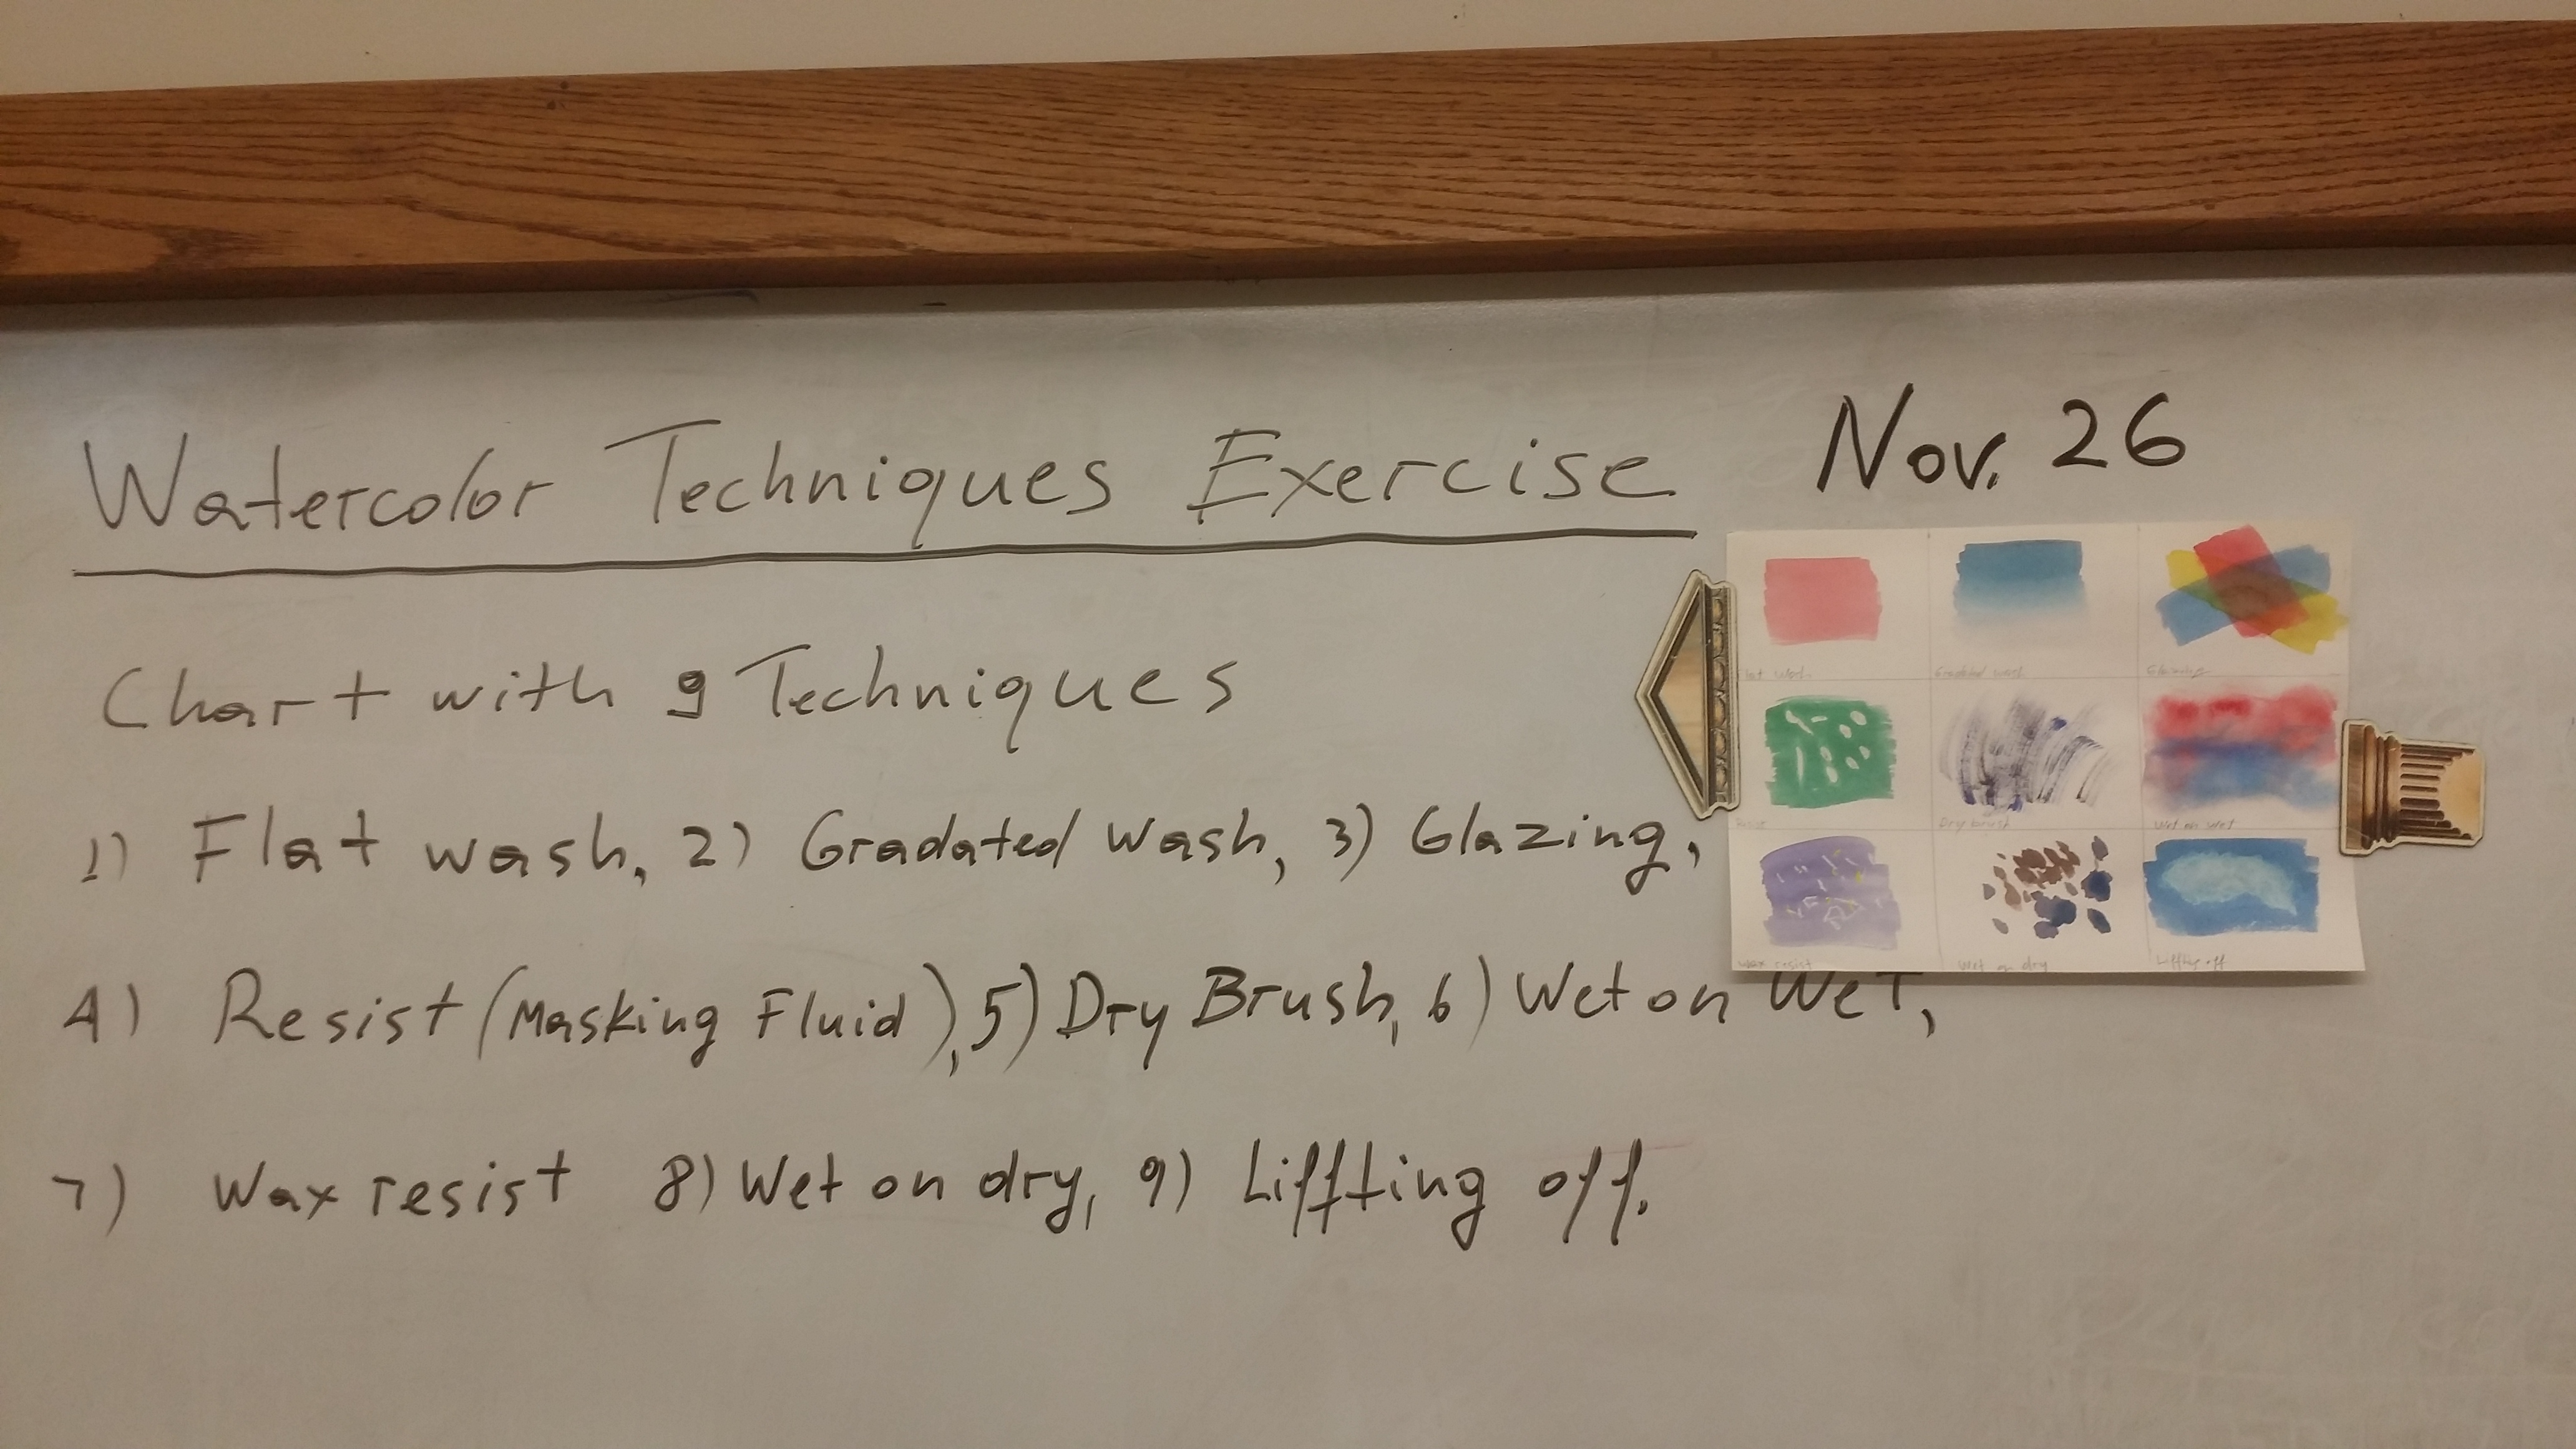 Watercolor Techniques Exercise Nov. 26
Chart with 9 Techniques
1) Flat wash, 2) Gradated wash, 3) Glazing,
4) Resist (Masking Fluid), 5) Dry Brush, 6) Wet on Wet,
7) Wax resist 8) Wet on dry, 9) Liffting off.
Flat wash Gradated wash Glazing
Resist Dry brush Wet on wet
Wax resist Wet on dry Liffting off